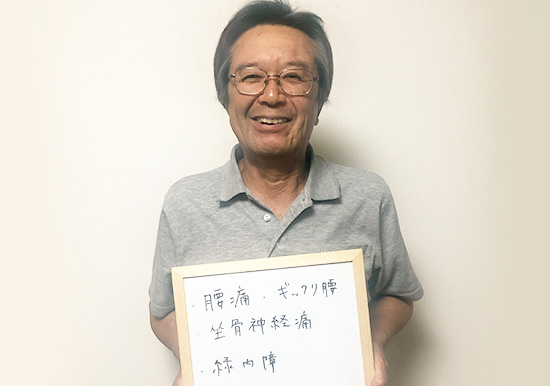 ・腰痛・ギックリ腰
・坐骨神経痛
・緑内障